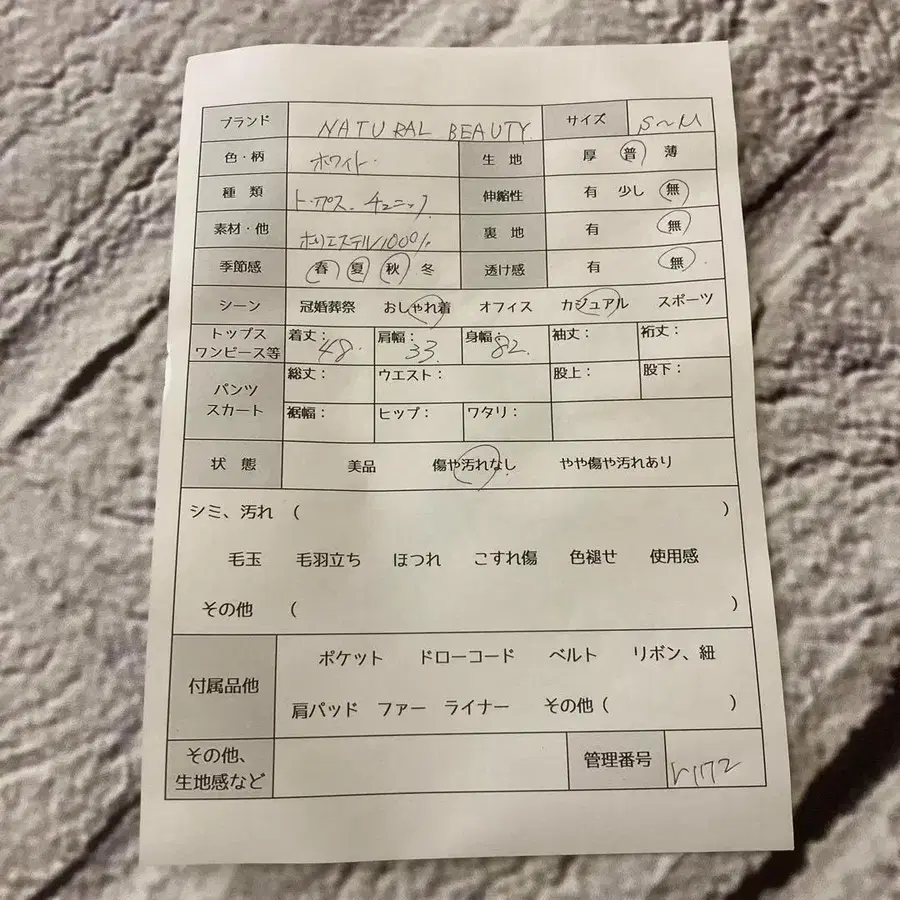 ブランド NATURAL BEAUTY サイズ S~M
色・柄 ホワイト 生地 厚 普 薄
種類 トップス、チュニック 伸縮性 有 少し 無
素材・他 ポリエステル100% 裏地 有 無
季節感 春 夏 秋 冬 透け感 有 無
シーン 冠婚葬祭 おしゃれ着 オフィス カジュアル スポーツ
トップス ワンピース等 着丈:48. 肩幅:33. 身幅:82. 袖丈: 裄丈:
パンツ スカート 総丈: ウエスト: 股上: 股下:
裾幅: ヒップ: ワタリ:
状態 美品 傷や汚れなし やや傷や汚れあり
シミ、汚れ ( )
毛玉 毛羽立ち ほつれ こすれ傷 色褪せ 使用感
その他 ( )
付属品他 ポケット ドローコード ベルト リボン、紐
肩パッド ファー ライナー その他 ( )
その他、生地感など 管理番号